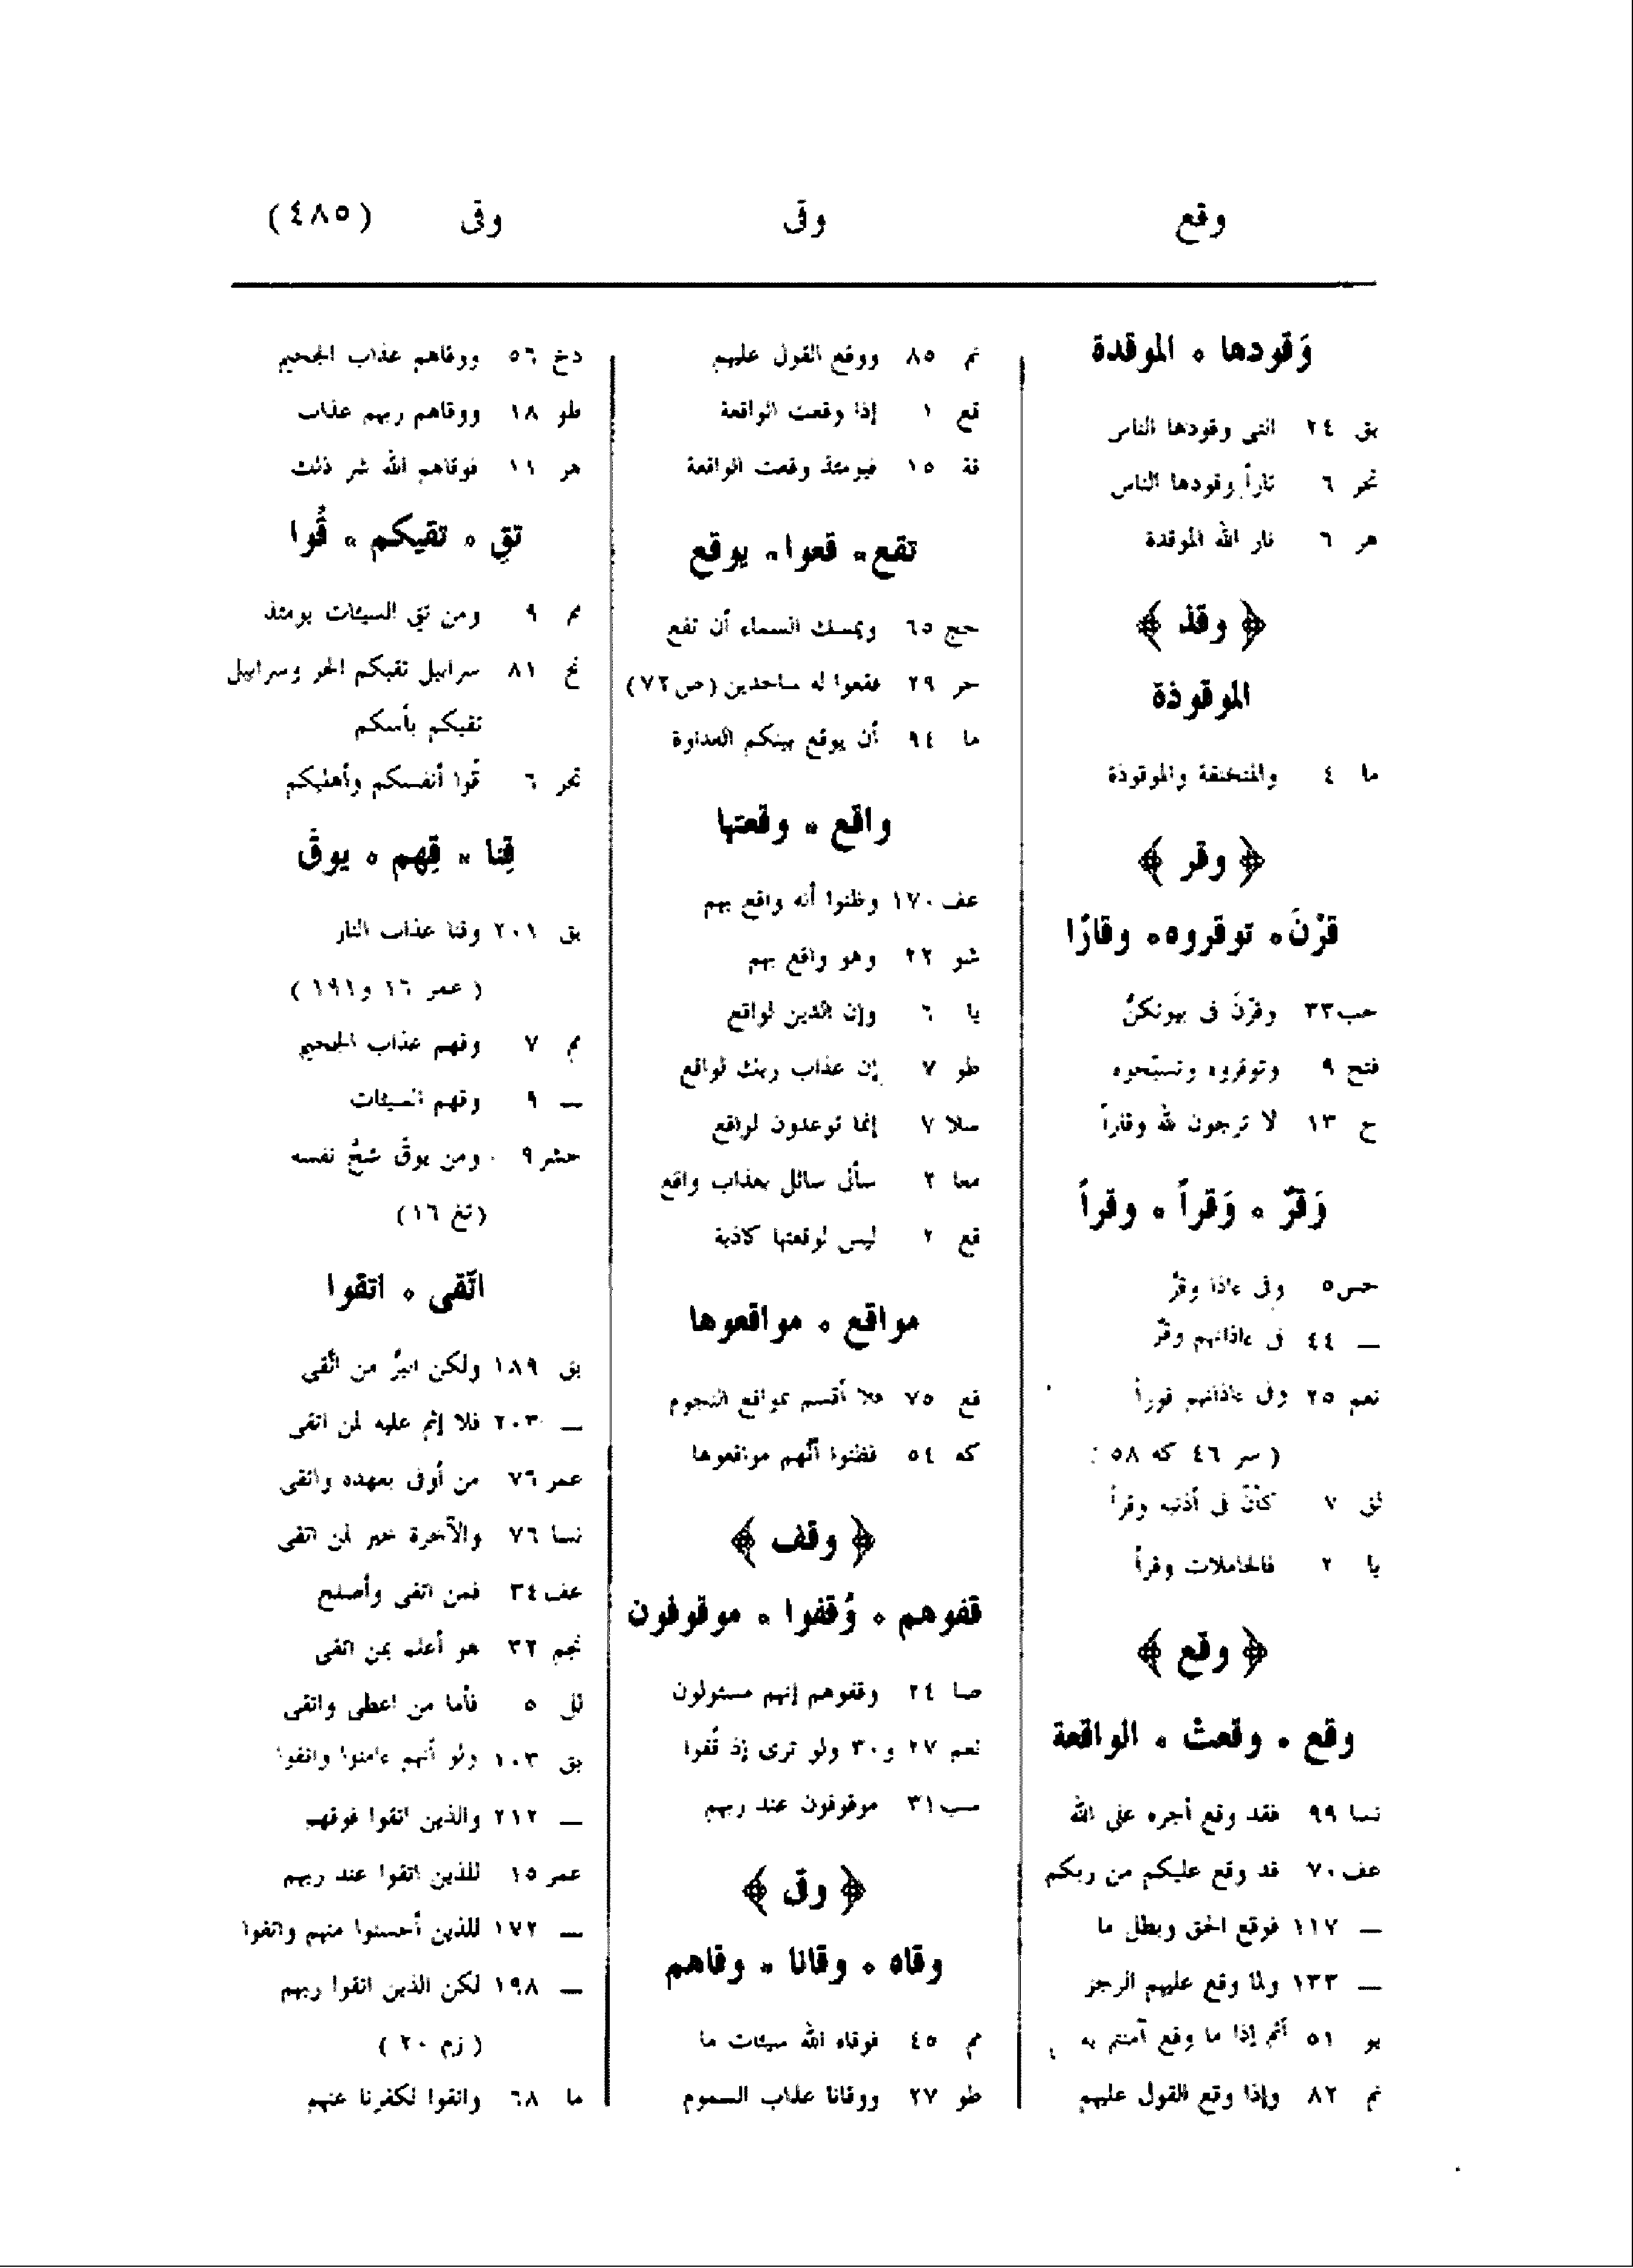 وقع
وقى
وقى (٤٨٥)
وَقودها ٠ الموقدة
بق ٢٤ التى وقودها الناس
تحر ٦ ناراً وقودها الناس
هر ٦ نار الله الموقدة
﴿ وقذ ﴾
الموقوذة
ما ٤ والمنخنقة والموقوذة
﴿ وقر ﴾
قرْنَ ٠ توقروه ٠ وقارًا
حب ٣٣ وقرْنَ فى بيوتكنَّ
فتح ٩ وتوقروه وتسبّحوه
ح ١٣ لا ترجون لله وقاراً
وَقرٌ ٠ وَقراً ٠ وقراً
حس ٥ وفى ءاذا وقرٌ
ــ ٤٤ فى ءاذانهم وقرٌ
نعم ٢٥ وفى ءاذانهم قوراً
( سر ٤٦ كه ٥٨ )
لق ٧ كأنَّ فى أذنيه وقراً
يا ٢ فالحاملات وقراً
﴿ وقع ﴾
وقع ٠ وقعتْ ٠ الواقعة
نسا ٩٩ فقد وقع أجره على الله
عف ٧٠ قد وقع عليكم من ربكم
ــ ١١٧ فوقع الحق وبطل ما
ــ ١٣٣ ولما وقع عليهم الرجز
يو ٥١ أثم إذا ما وقع آمنتم به
نم ٨٢ وإذا وقع القول عليهم
نم ٨٥ ووقع القول عليهم
قع ١ إذا وقعت الواقعة
قة ١٥ فيومئذ وقعت الواقعة
تقع ٠ قعوا ٠ يوقع
حج ٦٥ ويمسك السماء أن تقع
حر ٢٩ فقعوا له ساجدين (ص ٧٢)
ما ٩٤ أن يوقع بينكم العداوة
واقع ٠ وقعتها
عف ١٧٠ وظنوا أنه واقع بهم
شو ٢٢ وهو واقع بهم
يا ٦ وإن الدين لواقع
طو ٧ إن عذاب ربك لواقع
سلا ٧ إنما توعدون لواقع
معا ٢ سأل سائل بعذاب واقع
قع ٢ ليس لوقعتها كاذبة
مواقع ٠ مواقعوها
قع ٧٥ فلا أقسم بمواقع النجوم
كه ٥٤ فظنوا أنّهم مواقعوها
﴿ وقف ﴾
قفوهم ٠ وُقفوا ٠ موقوفون
صا ٢٤ وقفوهم إنهم مسئولون
نعم ٢٧ و٣٠ ولو ترى إذ قُفوا
سب ٣١ موقوفون عند ربهم
﴿ وقى ﴾
وقاه ٠ وقانا ٠ وقاهم
مم ٤٥ فوقاه الله سيئات ما
طو ٢٧ ووقانا عذاب السموم
دخ ٥٦ ووقاهم عذاب الجحيم
طو ١٨ ووقاهم ربهم عذاب
هر ١١ فوقاهم الله شر ذلك
تقِ ٠ تقيكم ٠ قُوا
مم ٩ ومن تق السيئات يومئذ
نح ٨١ سرابيل تقيكم الحر وسرابيل
تقيكم بأسكم
تحر ٦ قُوا أنفسكم وأهليكم
قِنا ٠ قِهِم ٠ يوقَ
بق ٢٠١ وقنا عذاب النار
( عمر ١٦ و١٩١ )
مم ٧ وقهم عذاب الجحيم
ــ ٩ وقهم السيئات
حشر ٩ ومن يوقَ شحَّ نفسه
(تغ ١٦)
اتّقى ٠ اتقوا
بق ١٨٩ ولكن البرَّ من اتّقى
ــ ٢٠٣ فلا إثم عليه لمن اتقى
عمر ٧٦ من أوفى بعهده واتقى
نسا ٧٦ والآخرة خير لمن اتقى
عف ٣٤ فمن اتقى وأصلح
نجم ٣٢ هو أعلم بمن اتقى
لل ٥ فأما من اعطى واتقى
بق ١٠٣ ولو أنهم ءامنوا واتقوا
ــ ٢١٢ والذين اتقوا فوقهم
عمر ١٥ للذين اتقوا عند ربهم
ــ ١٧٢ للذين أحسنوا منهم واتقوا
ــ ١٩٨ لكن الذين اتقوا ربهم
( زم ٢٠ )
ما ٦٨ واتقوا لكفرنا عنهم